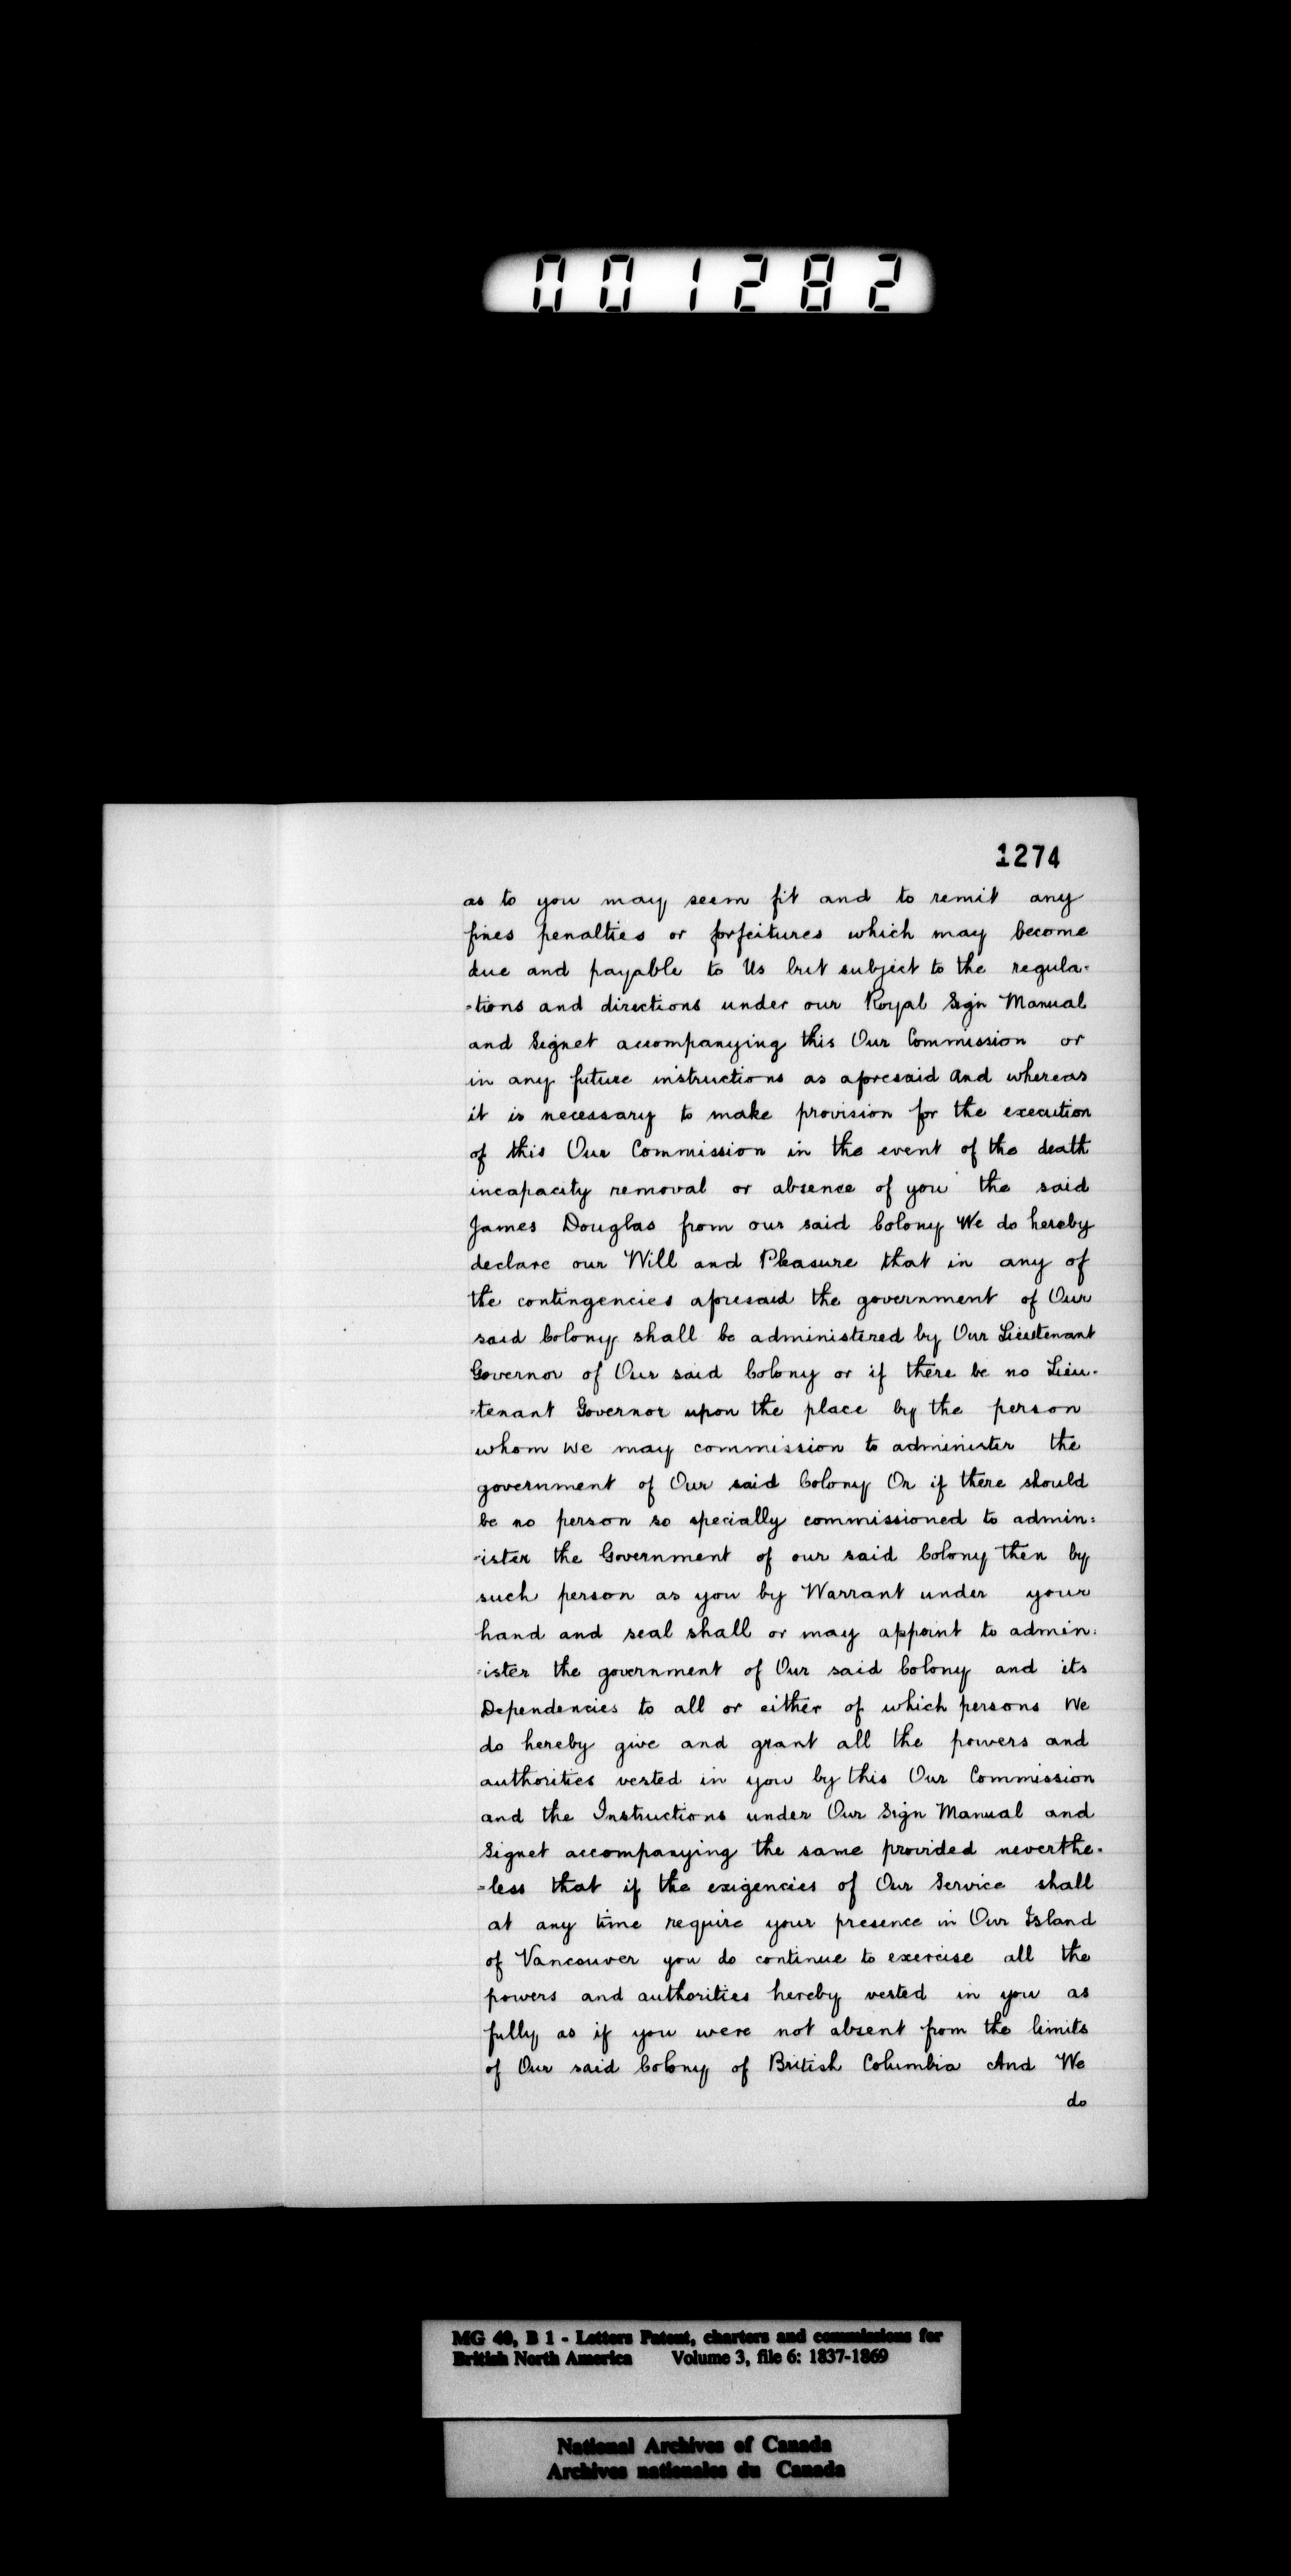 001282
1274
as to you may seem fit and to remit any
fines penalties or forfeitures which may become
due and payable to Us but subject to the regula-
-tions and directions under our Royal Sign Manual
and Signet accompanying this Our Commission or
in any future instructions as aforesaid And whereas
it is necessary to make provision for the execution
of this Our Commission in the event of the death
incapacity removal or absence of you the said
James Douglas from our said Colony We do hereby
declare our Will and Pleasure that in any of
the contingencies aforesaid the government of Our
said Colony shall be administered by Our Lieutenant
Governor of Our said Colony or if there be no Lieu-
-tenant Governor upon the place by the person
whom We may commission to administer the
government of Our said Colony Or if there should
be no person so specially commissioned to admin-
-ister the Government of our said Colony then by
such person as you by Warrant under your
hand and seal shall or may appoint to admin-
-ister the government of Our said Colony and its
Dependencies to all or either of which persons We
do hereby give and grant all the powers and
authorities vested in you by this Our Commission
and the Instructions under Our Sign Manual and
Signet accompanying the same provided neverthe-
-less that if the exigencies of Our Service shall
at any time require your presence in Our Island
of Vancouver you do continue to exercise all the
powers and authorities hereby vested in you as
fully as if you were not absent from the limits
of Our said Colony of British Columbia And We
do
MG 40, B 1 - Letters Patent, charters and commissions for
British North America Volume 3, file 6: 1837-1869
National Archives of Canada
Archives nationales du Canada